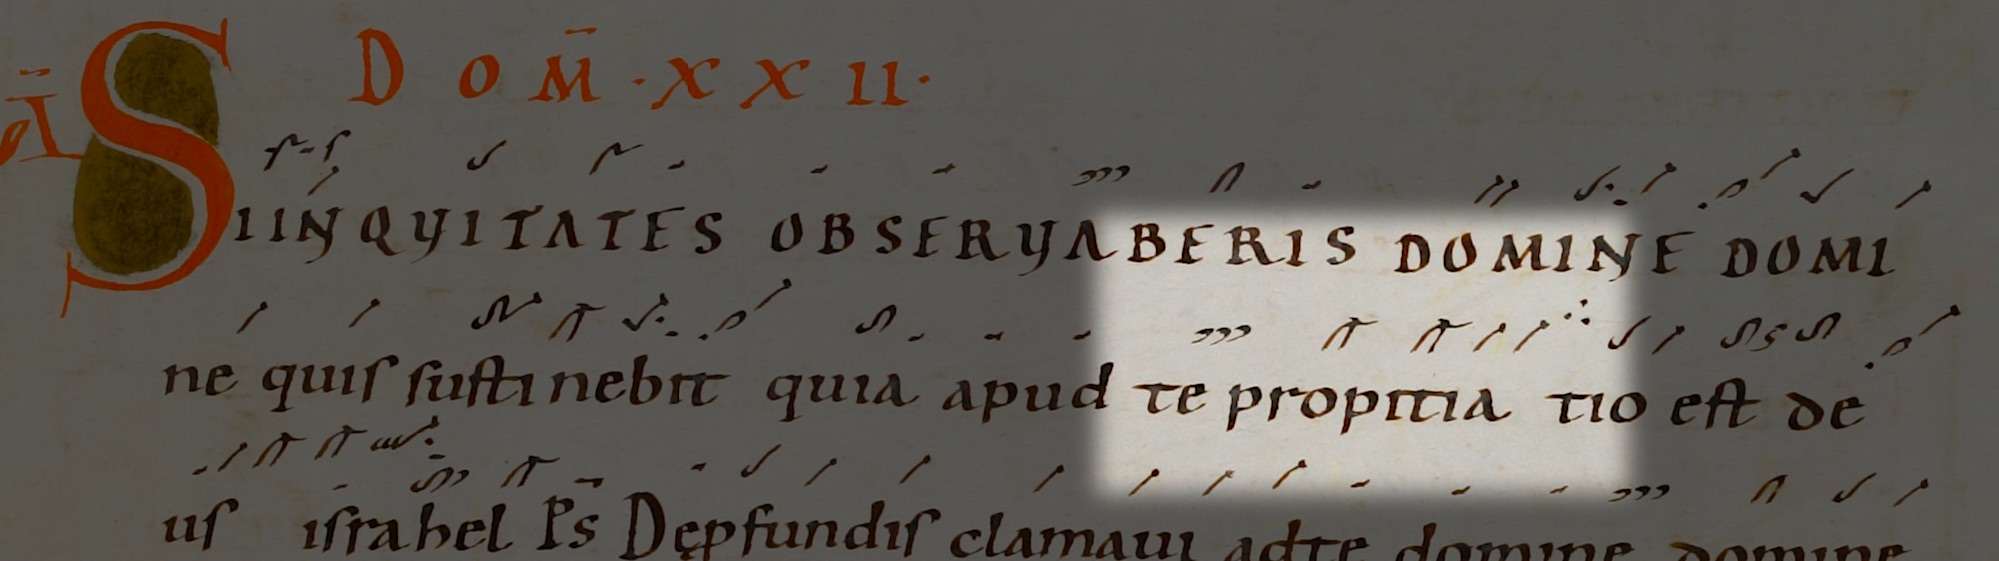 DOM̄·XXII·
A͞
SI INIQUITATES OBSERUABERIS DOMINE DOMI
ne quiſ ſuſtinebit quia apud te propitia tio eſt de
uſ iſrahel Ps̄ Dę pfundiſ clamaui ad te domine domine